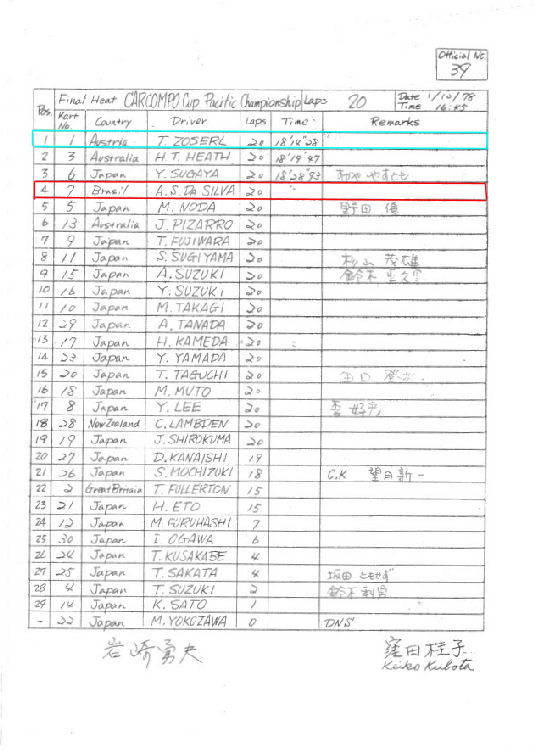 Official No.
39
Final Heat CARCOMPO Cup Pacific Championship Laps 20 Date 1/10/78
Time 16:45
Pos. Kart No. Country Driver Laps Time Remarks
1 1 Austria T. ZOSERL 20 18'14"28
2 3 Australia H.T. HEATH 20 18'19"47
3 6 Japan Y. SUGAYA 20 18'28"93
4 7 Brasil A.S. DA SILVA 20
5 5 Japan M. NODA 20 野田 優
6 13 Australia J. PIZARRO 20
7 9 Japan T. FUJIWARA 20
8 11 Japan S. SUGIYAMA 20 杉山 茂雄
9 15 Japan A. SUZUKI 20 鈴木
10 16 Japan Y. SUZUKI 20
11 10 Japan M. TAKAGI 20
12 29 Japan A. TANADA 20
13 17 Japan H. KAMEDA 20
14 23 Japan Y. YAMADA 20
15 20 Japan T. TAGUCHI 20
16 18 Japan M. MUTO 20
17 8 Japan Y. LEE 20
18 28 New Zealand C. LAMBDEN 20
19 19 Japan J. SHIROKUMA 20
20 27 Japan D. KANAISHI 19
21 26 Japan S. MOCHIZUKI 18 C.K 望月新一
22 2 Great Britain T. FULLERTON 15
23 21 Japan H. ETO 15
24 12 Japan M. FURUHASHI 7
25 30 Japan I OGAWA 6
26 24 Japan T. KUSAKABE 4
27 25 Japan T. SAKATA 4 坂田
28 4 Japan T. SUZUKI 2 鈴木利男
29 14 Japan K. SATO 1
- 22 Japan M. YOKOZAWA 0 DNS
岩崎勇夫
窪田桂子
Keiko Kubota